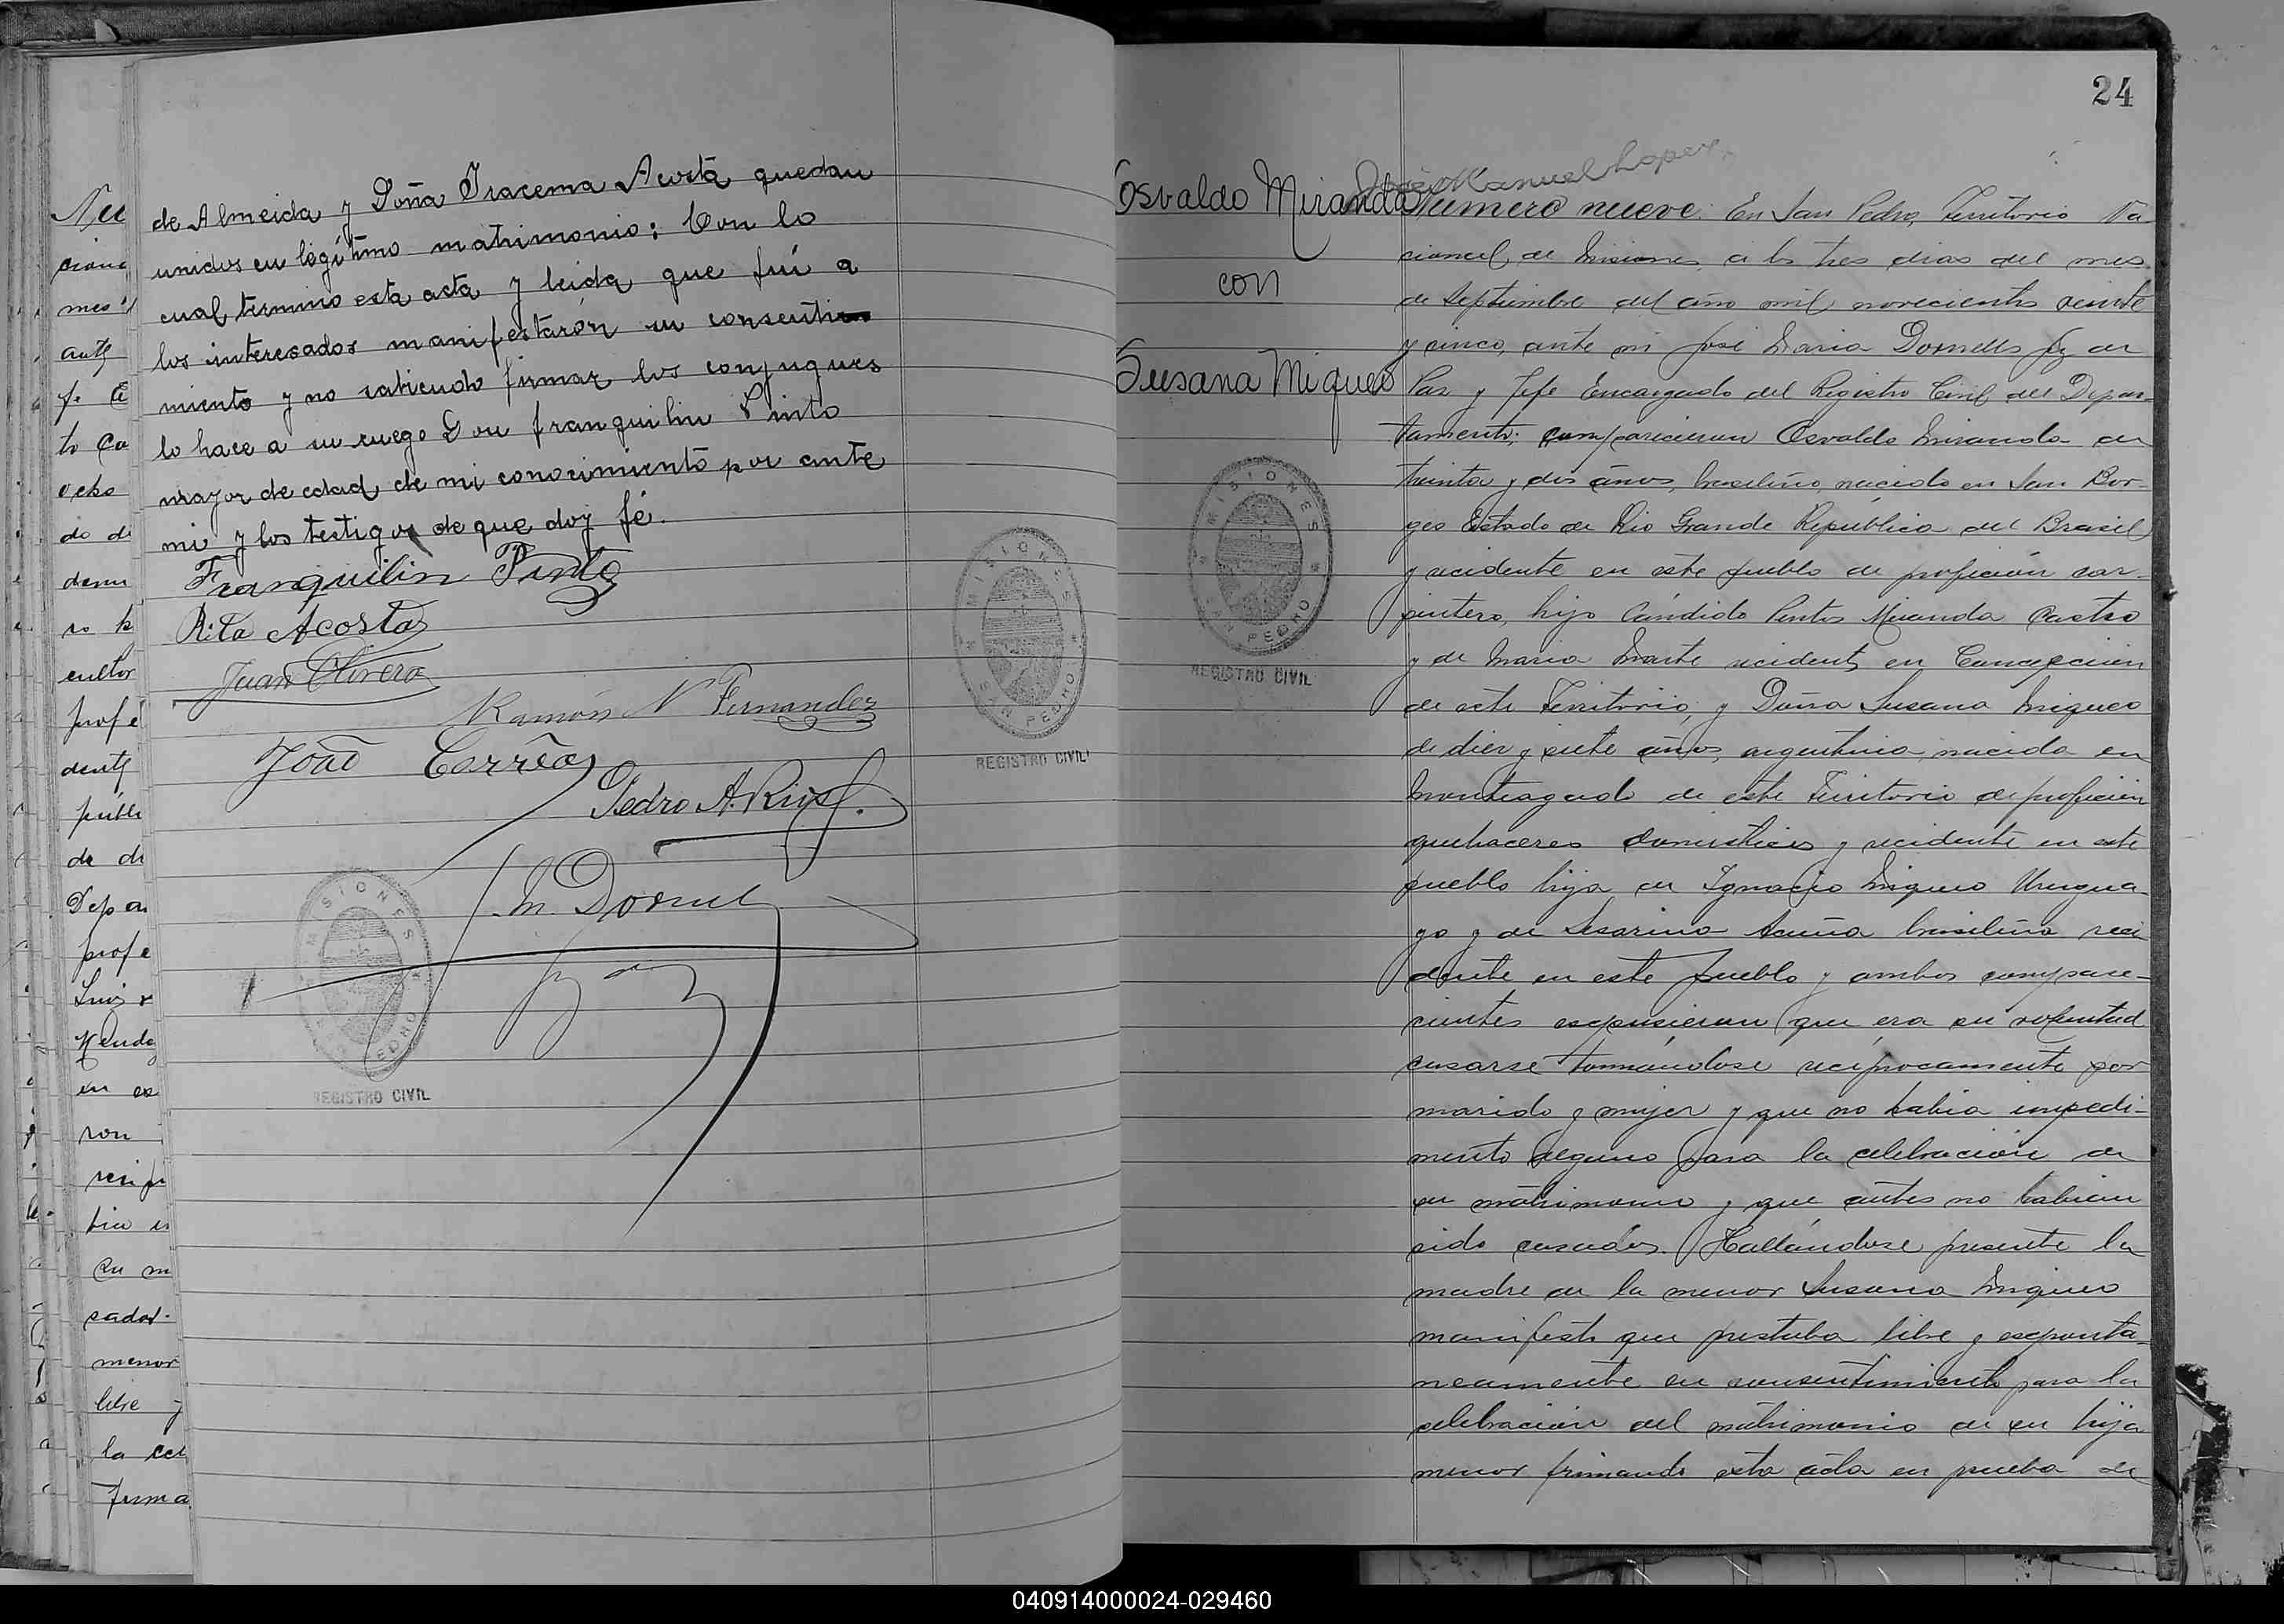 de Almeida y Doña Iracema Acosta quedan
unidos en legítimo matrimonio: Con lo
cual termino esta acta y leida que fué a
los interesados manifestarón su consenti
miento y no sabiendo firmar los conyugues
lo hace a su ruego Don Franquilin Pinto
mayor de edad de mi conocimiento por ante
mi y los testigos de que doy fé.
Franquilin Pinto
Rita Acosta
Juan Olivera
Ramón N Fernandez
João Corrêa
Pedro A. Rios
MISIONES
SAN PEDRO
REGISTRO CIVIL
MISIONES
SAN PEDRO
REGISTRO CIVIL
Nu
ciona
mes
ante
to Ca
ocho
do di
cultor
profe
dente
públi
de di
Depar
profe
en es
ron
recipr
menor
libre y
la cel
firma
24
José Manuel Lopez
Osvaldo Miranda
con
Susana Miqueo
MISIONES
SAN PEDRO
REGISTRO CIVIL
Número nueve: En San Pedro, Territorio Na
cional de Misiones, a los tres dias del mes
de Septiembre del año mil novecientos veinte
y cinco, ante mi José Maria Dornells Jz de
Paz y Jefe Encargado del Registro Civil del Depar-
tamento; comparecieron Osvaldo Miranda de
treinta y dos años, brasileño, nacido en San Bor-
ges Estado de Rio Grande República del Brasil
y recidente en este pueblo de profeción car-
pintero, hijo Cándido Pintos Miranda Castro
y de Maria Duarte recidente en Concepción
de este Territorio; y Doña Susana Miqueo
de diez y siete años, argentina, nacida en
Monteagudo de este Territorio de profeción
quehaceres domesticos y recidente en este
pueblo hija de Ignacio Miqueo Urugua-
yo y de Sesarina Acuña brasileña reci
dente en este pueblo y ambos compare-
cientes expusieron que era su voluntad
casarse tomándose recíprocamente por
marido y mujer y que no habia impedi-
mento alguno para la celebración de
su matrimonio y que antes no habian
sido casados. Hallándose presente la
madre de la menor Susana Miqueo
manifestó que prestaba libre y esponta-
neamente su consentimiento para la
celebración del matrimonio de su hija
menor firmando esta acta en prueba de
040914000024-029460